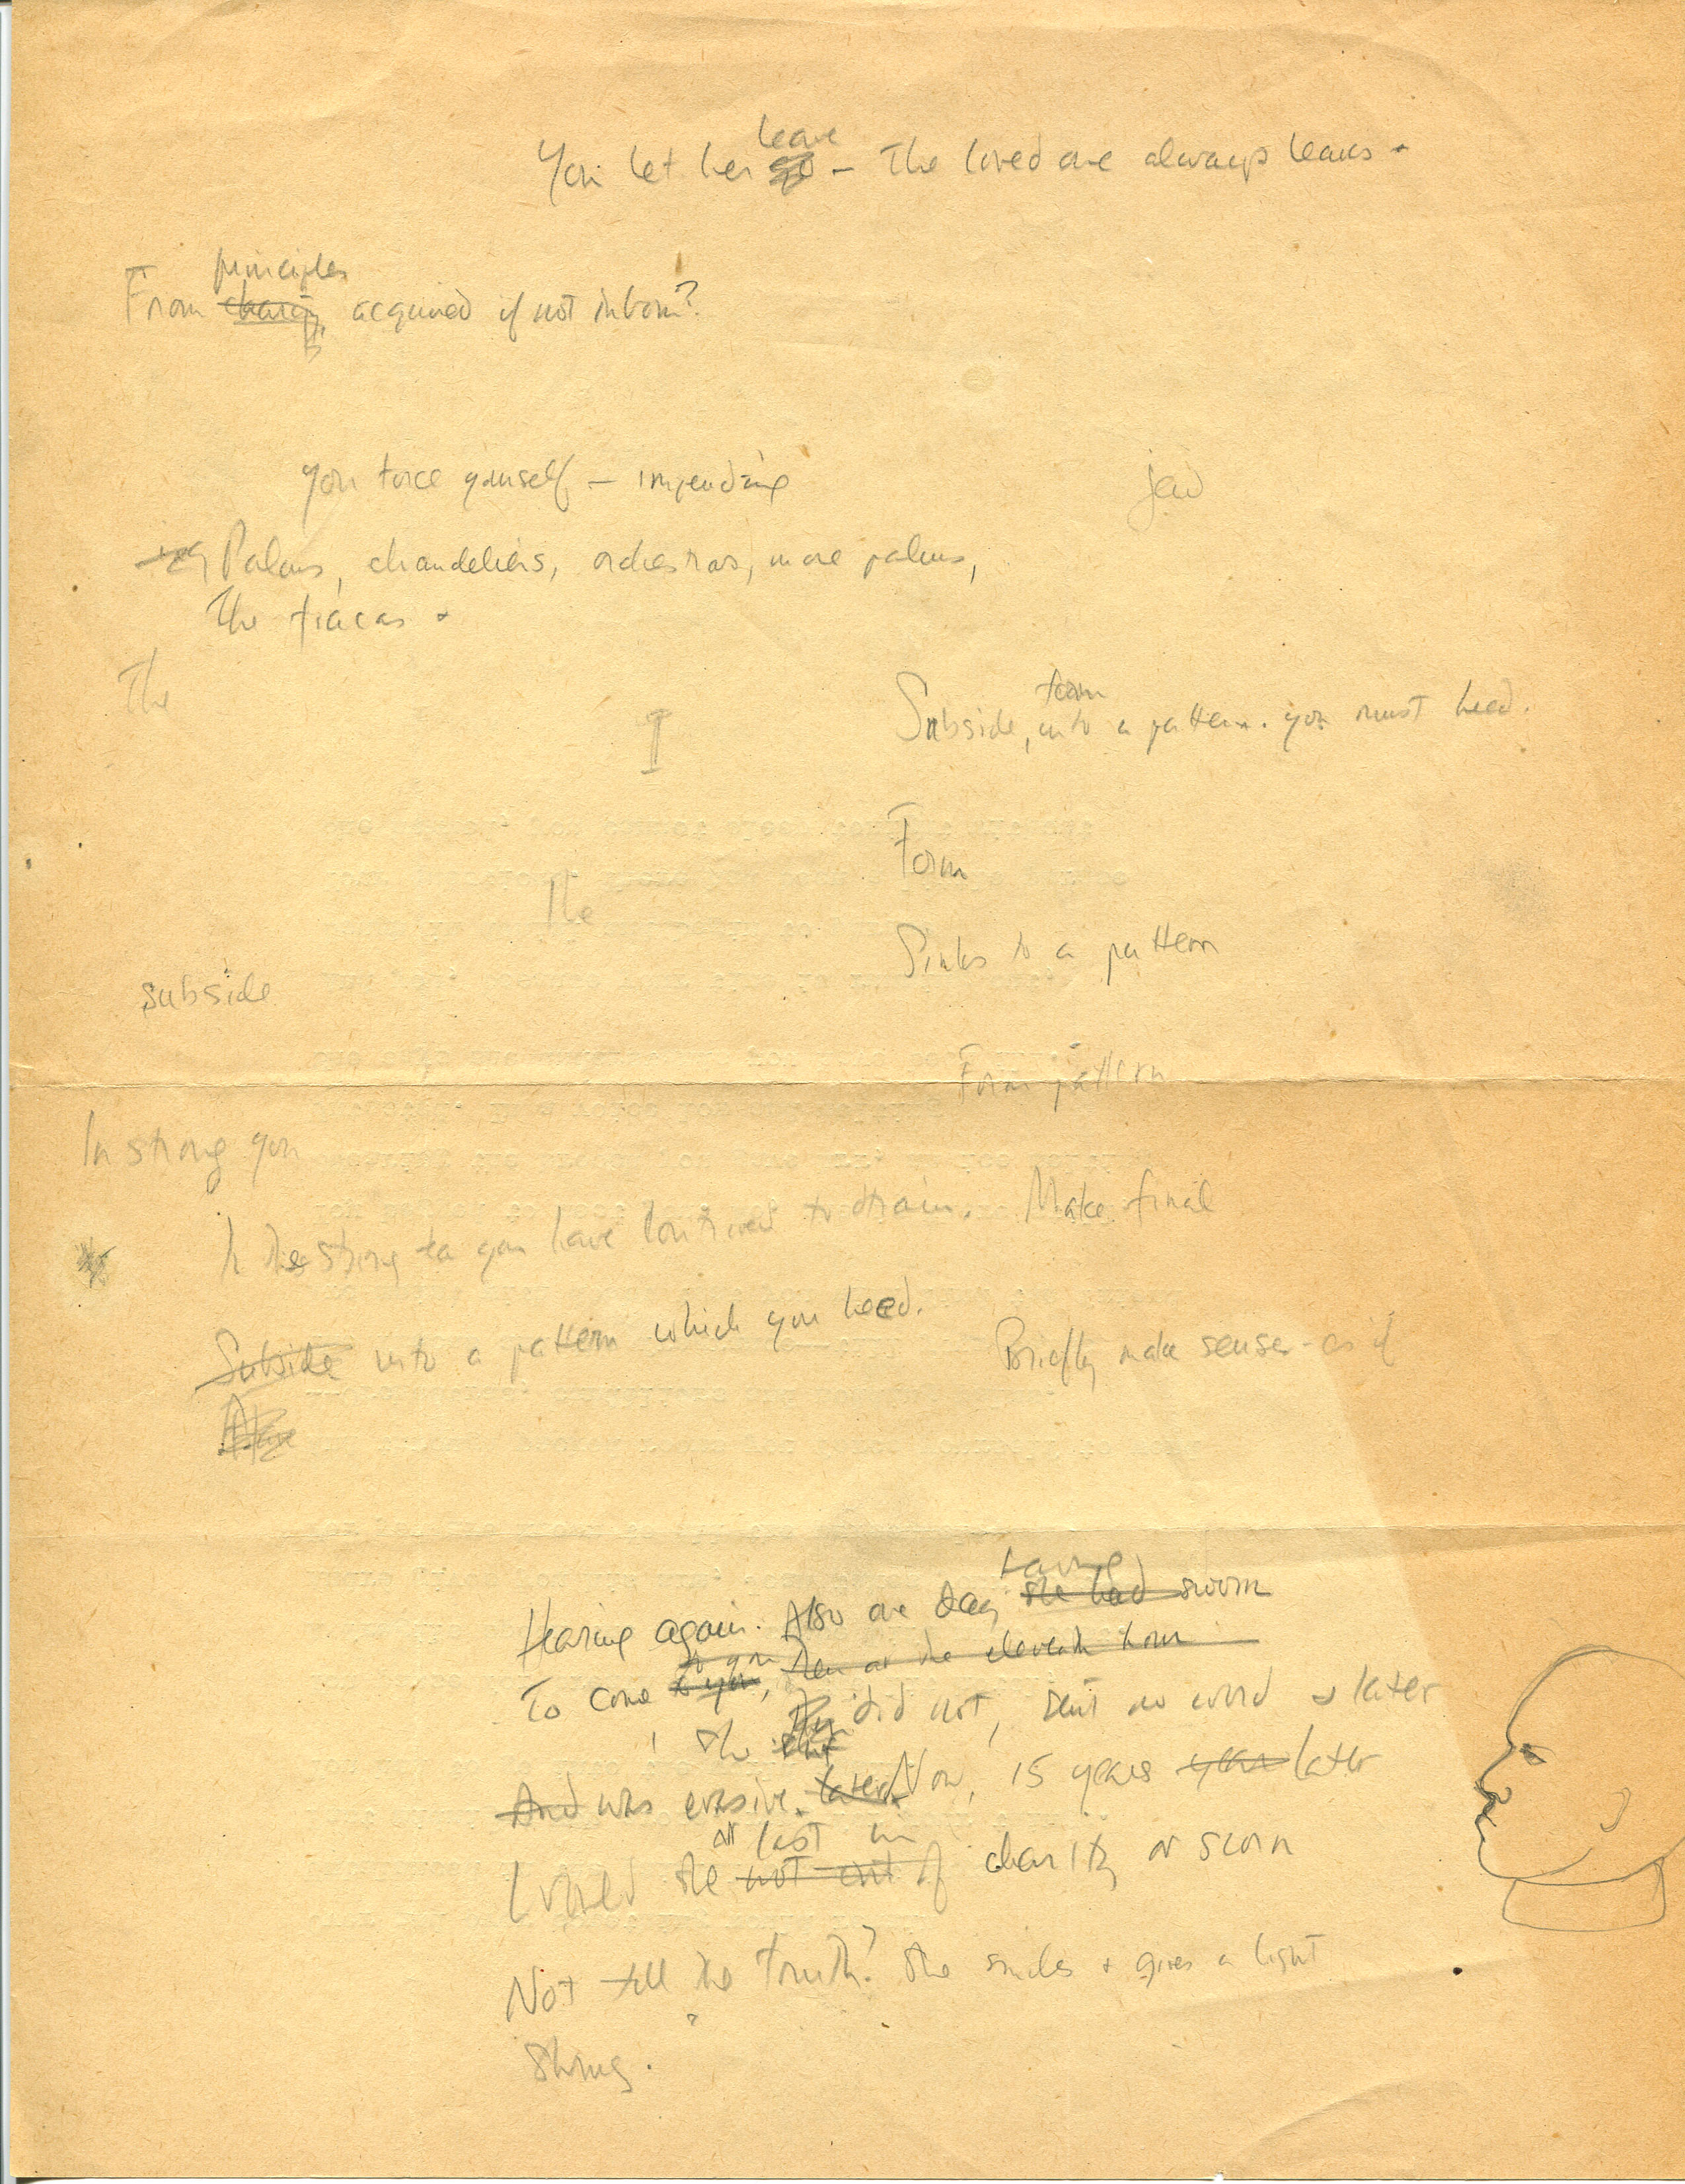 leave
You let her go – The loved one always leaves.
principles
From charity, acquired if not inborn?
you force yourself – impending
jew
Palms, chandeliers, orchestras, more palms,
The fracas.
The
form
Subside, into a pattern. you must heed.
I
Form
The
Sinks to a pattern
subside
Form pattern
In strong you
In the strong tea you have contrived to drain. Make final
Subside into a pattern which you heed.
Briefly make sense – as if
Having
Hearing again. Also one day she had sworn
to you
To come to you, then at the eleventh hour
She did not, sent no word & later
And was evasive. later. Now, 15 years years later
at last in
Could she not out of charity or scorn
Not tell the truth? She smiles & gives a light
Shrug.